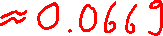 ≈0.0669